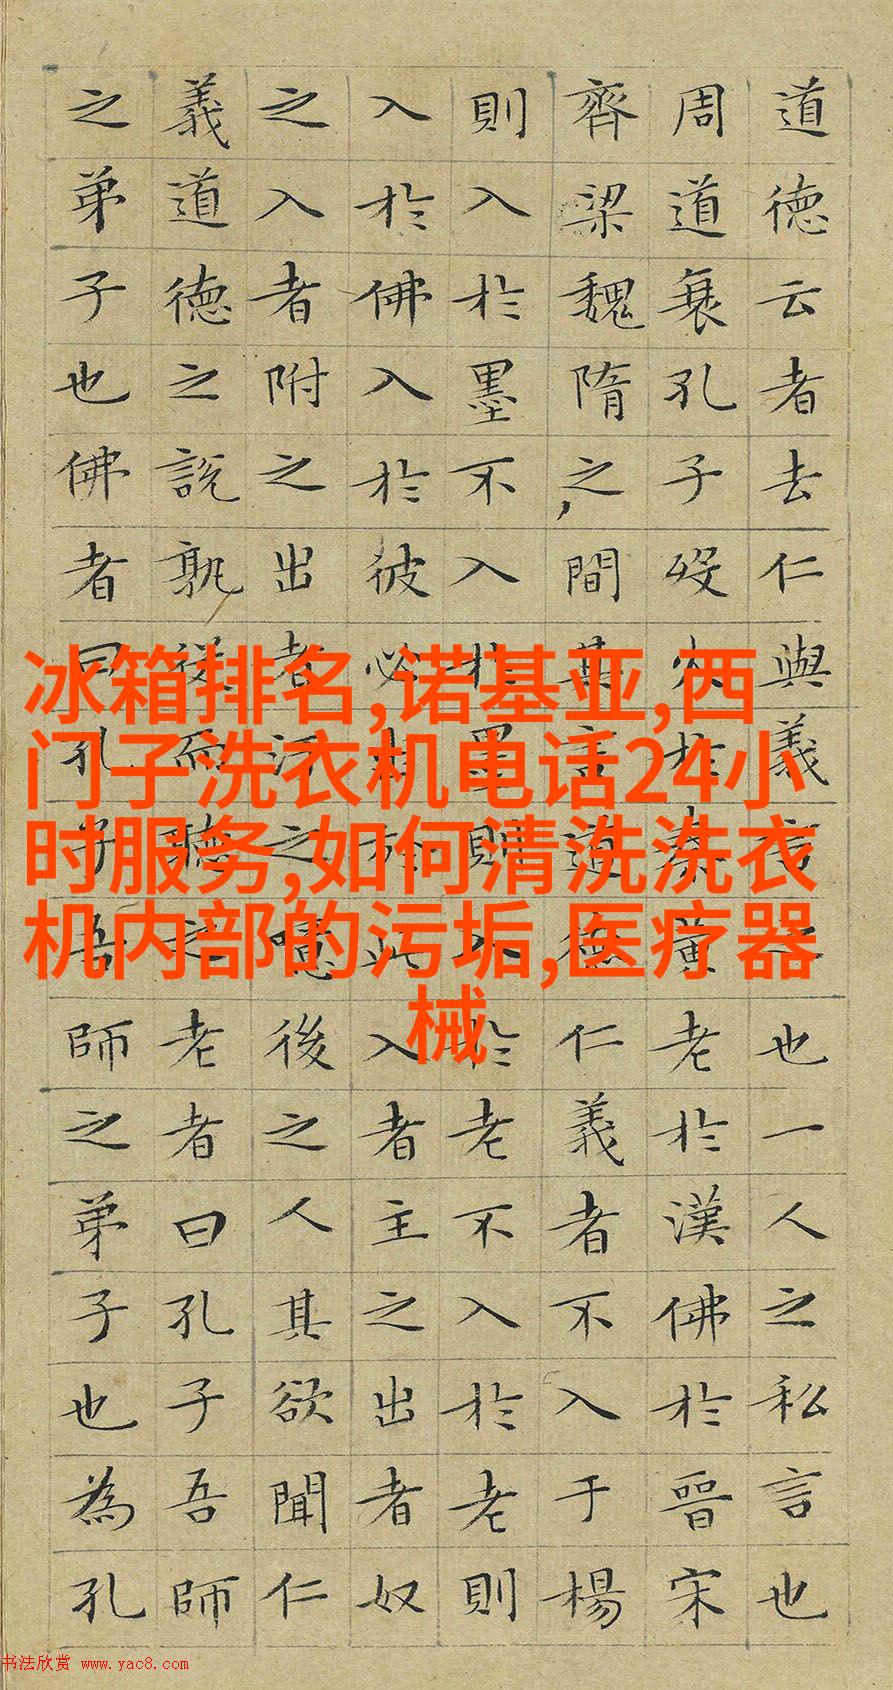 道德云者去仁與義言之也一人之私言也
周道衰孔子歿火於秦黃老於漢佛於晉宋
齊梁魏隋之間其言道德仁義者不入于楊
則入於墨不入於墨則入於老不入於老則
入於佛入於彼必出於此入者主之出者奴
之入者附之出者汙之噫後之人其欲聞仁
義道德之說孰從而聽之老者曰孔子吾師
之弟子也佛者曰孔子吾師之弟子也為孔
冰箱排名,诺基亚,西
门子洗衣机电话24小
时服务,如何清洗洗衣
机内部的污垢,医疗器
械
书法欣赏 www.yac8.com